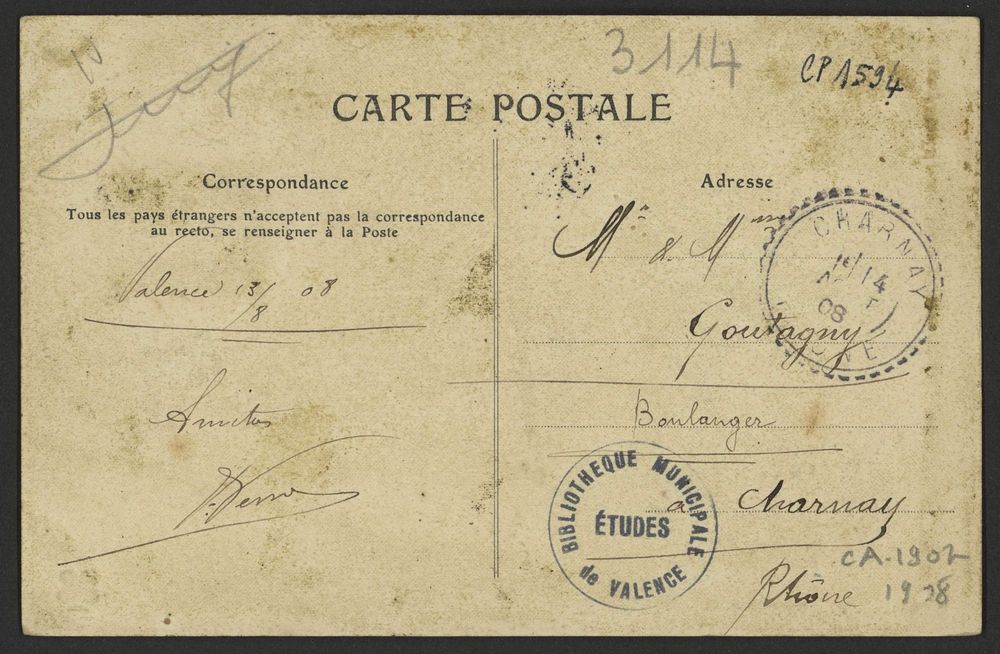 3114
CP1594
CARTE POSTALE
Correspondance
Tous les pays étrangers n'acceptent pas la correspondance
au recto, se renseigner à la Poste
Valence 13/8 08
Amitiés
Adresse
Mr & Mme
Goutagny
Boulanger
à Charnay
Rhône
CHARNAY
14
08
BIBLIOTHEQUE MUNICIPALE
ÉTUDES
de VALENCE
CA-1902
1928